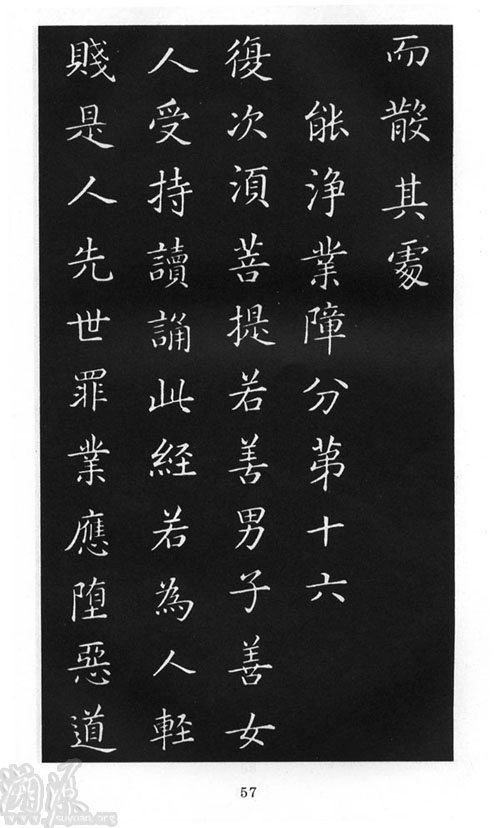 而散其處
能淨業障分第十六
復次須菩提若善男子善女
人受持讀誦此経若為人軽
賤是人先世罪業應堕惡道
57
suyuan.org